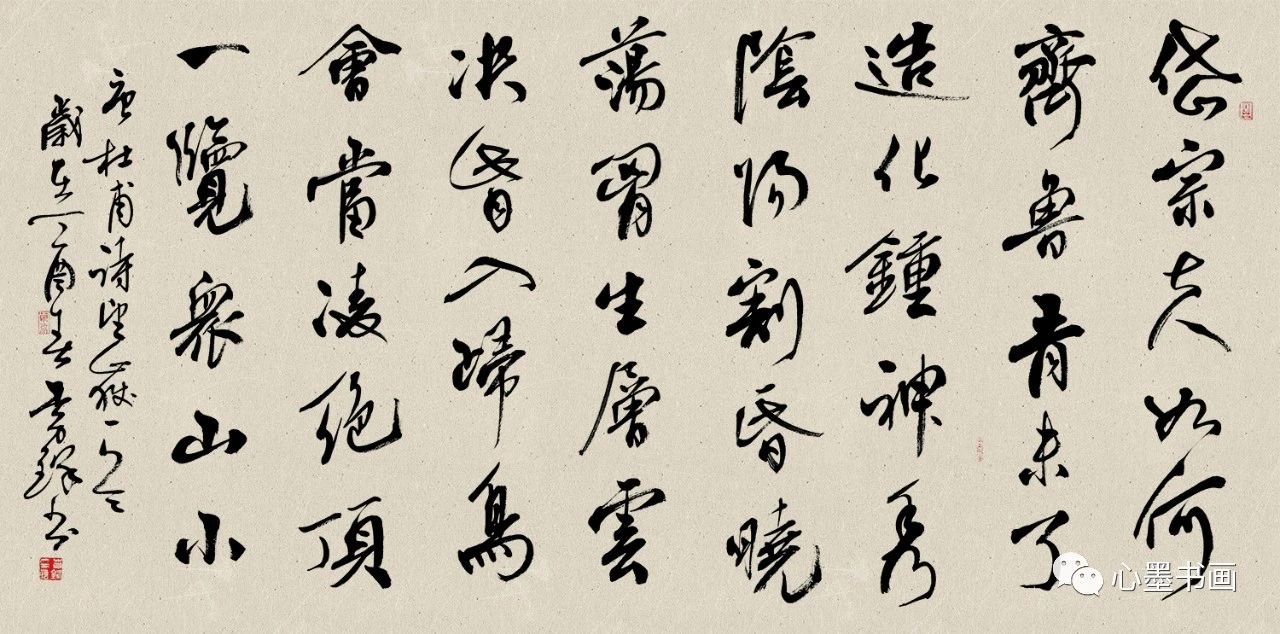 岱宗夫如何
齊魯青未了
造化鍾神秀
陰陽割昏曉
蕩胷生層雲
决眥入歸鳥
會當凌絕頂
一覽衆山小
唐杜甫詩望嶽一
歲在丁酉書
心墨书画